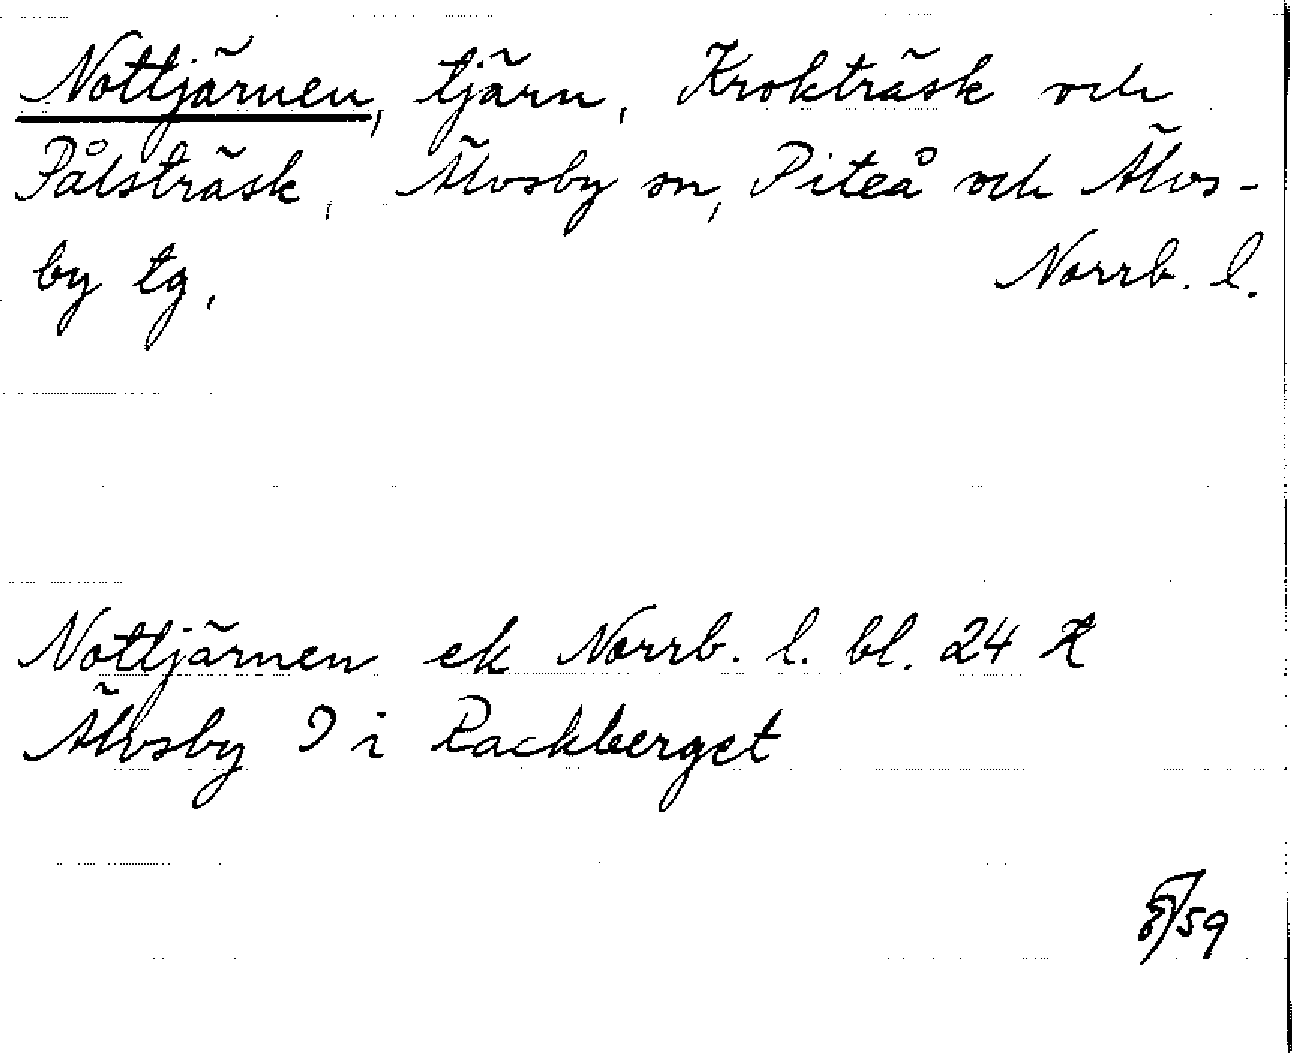 Nottjärnen, tjärn, Krokträsk och
Pålsträsk, Älvsby sn, Piteå och Älvs-
by tg, Norrb. l.
Nottjärnen ek Norrb. l. bl. 24
Älvsby i Rackberget
/59